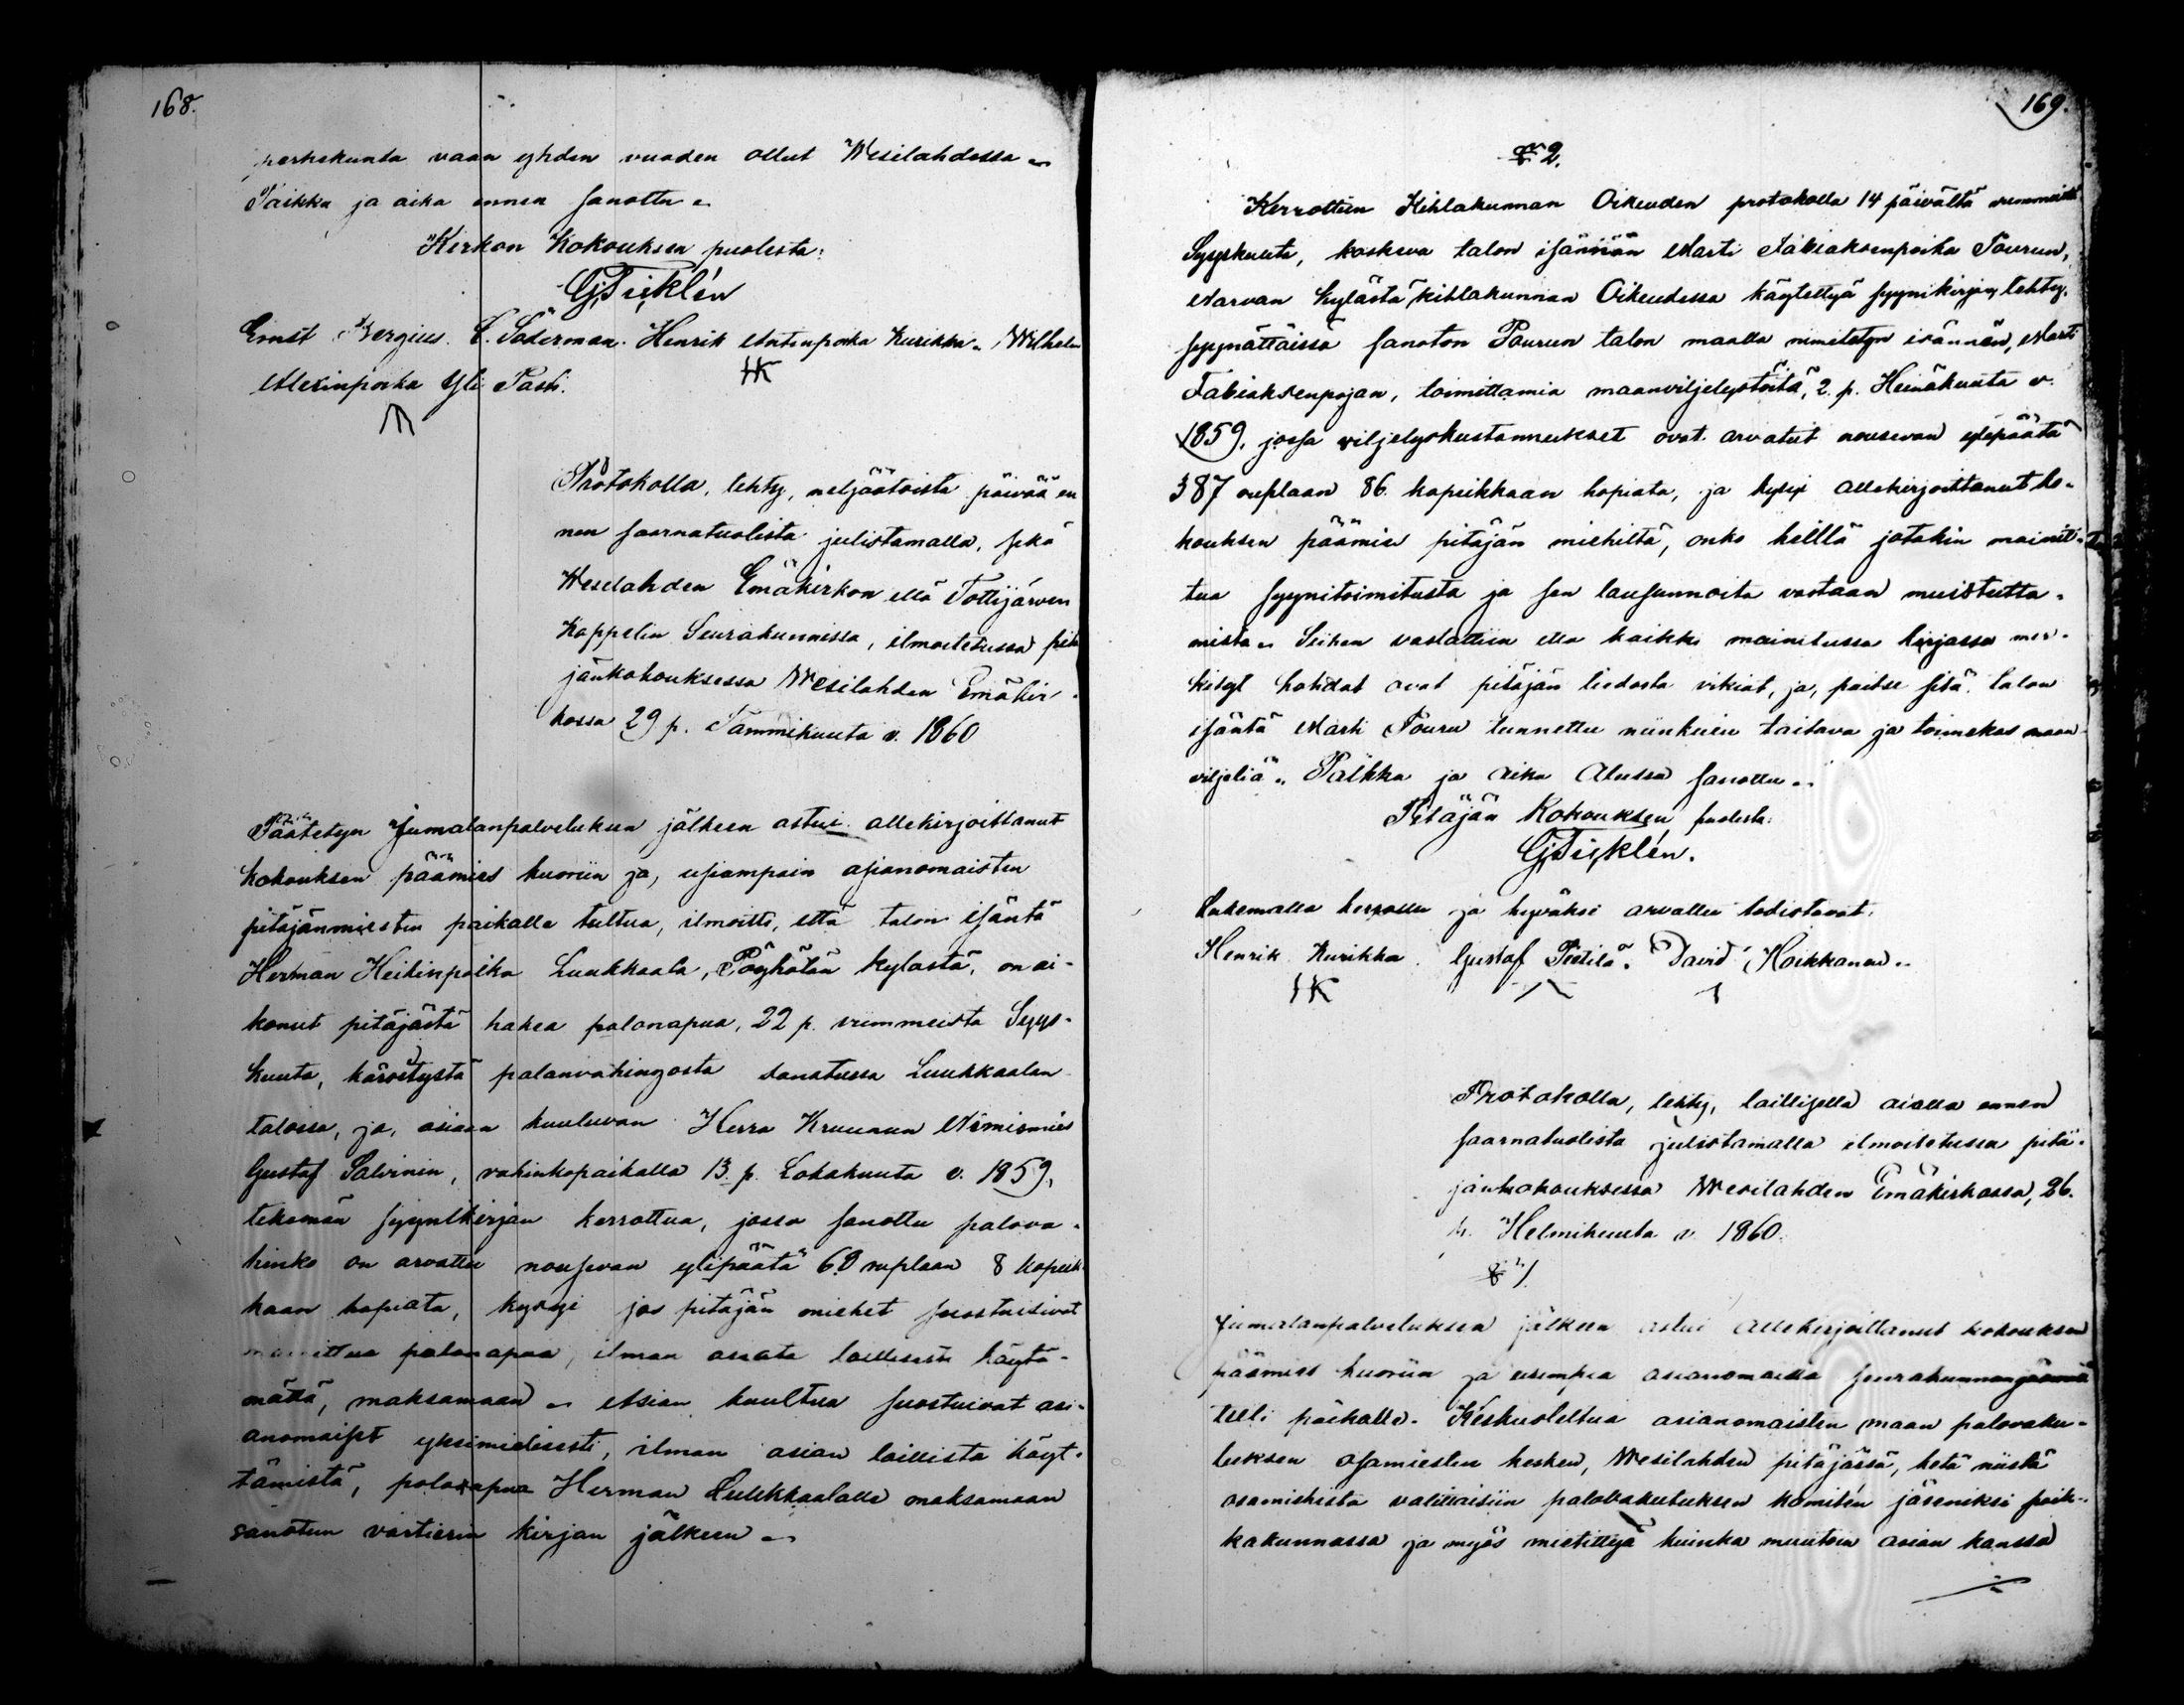 168.
perhekunta vaan yhden vuoden ollut Wesilahdessa.
Paikka ja aika ennen sanottu.
Kerkon Kokouksen puolesta:
Ernst Bergius. C. Söderman. Henrik Antinpoika Kurikka. Wilhelm
Alexinpoika Yli Pasti.
HK
Protokolla, tehty, neljäätoista päivää en
nen saarnatuolista julistamalla, sekä
Wesilahden Emäkirkon että Tottijärven
Kappelin Seurakunnissa, ilmoitetussa pitä
jänkokouksessa Wesilahden Emäkir
kossa 29 p. Tammikuuta v. 1860
Päätetyn Jumalanpalveluksen jälkeen astui allekirjoittanut
kokouksen päämies kuoriin ja, usiampain asianomaisten
pitäjänmiesten paikalle tultua, ilmoitti, että talon isäntä
Herman Heikinpoika Luukkaala, Pöyhölän kylästä, on ai-
konut pitäjästä hakea palonapua, 22 p. viimmeista Syys-
kuuta, kärsitystä palonvahingosta sanatussa Luukkaalan
talossa, ja, asiaan kuuluvan Herra Kruunun Nimismies
Gustaf Salvinin, vahinkopaikalla 13. p. Lokakuuta v. 1859,
tekemän syynikirjan kerrottua, jossa sanottu palova-
hinko on arvattu nousevan ylipäätä 68 ruplaan 8 kopeik
kaan hopiata, kysyi jos pitäjän miehet suostuisivat
mainittua palonapua, ilman asiata laillisesti käytä-
mättä, maksamaan. Asian kuultua suostuivat asi-
anomaiset yksimielisesti, ilman asian laillista käyt-
tämistä, palonapua Herman Luukkaalalle maksamaan
sanotun vartierin kirjan jälkeen.
169.
§ 2.
Kerrottiin Kihlakunnan Oikeuden protokolla 14 päivältä viimmeistä
Syyskuuta, koskeva talon isännän Marti Fabiaksenpoika Pourun,
Narvan kylästä kihlakunnan Oikeudessa käytettyä syynikirjaa, tehty,
syynättäissä sanoton Pourun talon maalla nimitetyn isännän, Marti
Fabiaksenpojan, toimittamia maanviljelystöitä, 2. p. Heinäkuuta v.
1859, jossa viljelyskustannukset ovat arvatut nousevan ylipäätä
387 ruplaan 86. kopeikkaan hopiata, ja kysyi allekirjoittanut ko-
kouksen päämies pitäjän miehiltä, onko heillä jotakin mainit-
tua syynitoimitusta ja sen lausunnoita vastaan muistutta-
mista. Siihen vastattiin että kaikki mainitussa kirjassa mer-
kityt kohdat ovat pitäjän tiedosta vikiat, ja, paitse sitä, talon
isäntä Marti Pouru tunnettu niinkuin taitava ja toimekas maan
viljeliä. Paikka ja Aika Alussa sanottu.
Pitäjän Kokouksen puolesta:
Lukemalla kerrottu ja hyväksi arvattu todistavat.
Henrik Kurikka. Gustaf Pietilä. David Hoikkanen.
HK
Protokolla, tehty, laillisella aialla ennen
saarnatuolista julistamalla ilmoitetussa pitä-
jänkokouksessa Wesilahden Emäkirkossa, 26.
p. Helmikuuta v. 1860.
§ 1.
Jumalanpalveluksen jälkeen astui Allekirjoittanut kokouksen
päämies kuoriin ja usiampia asianomaisia seurakunnan
tuli paikalle. Keskusteltua asianomaisten maan palovaku-
tuksen osamiesten kesken, Wesilahden pitäjässä, ketä niistä
osamiehistä valittaisiin palovakutuksen komitén jäseniksi paik-
kakunnassa ja myös mietittyä kuinka muutoin asian kanssa